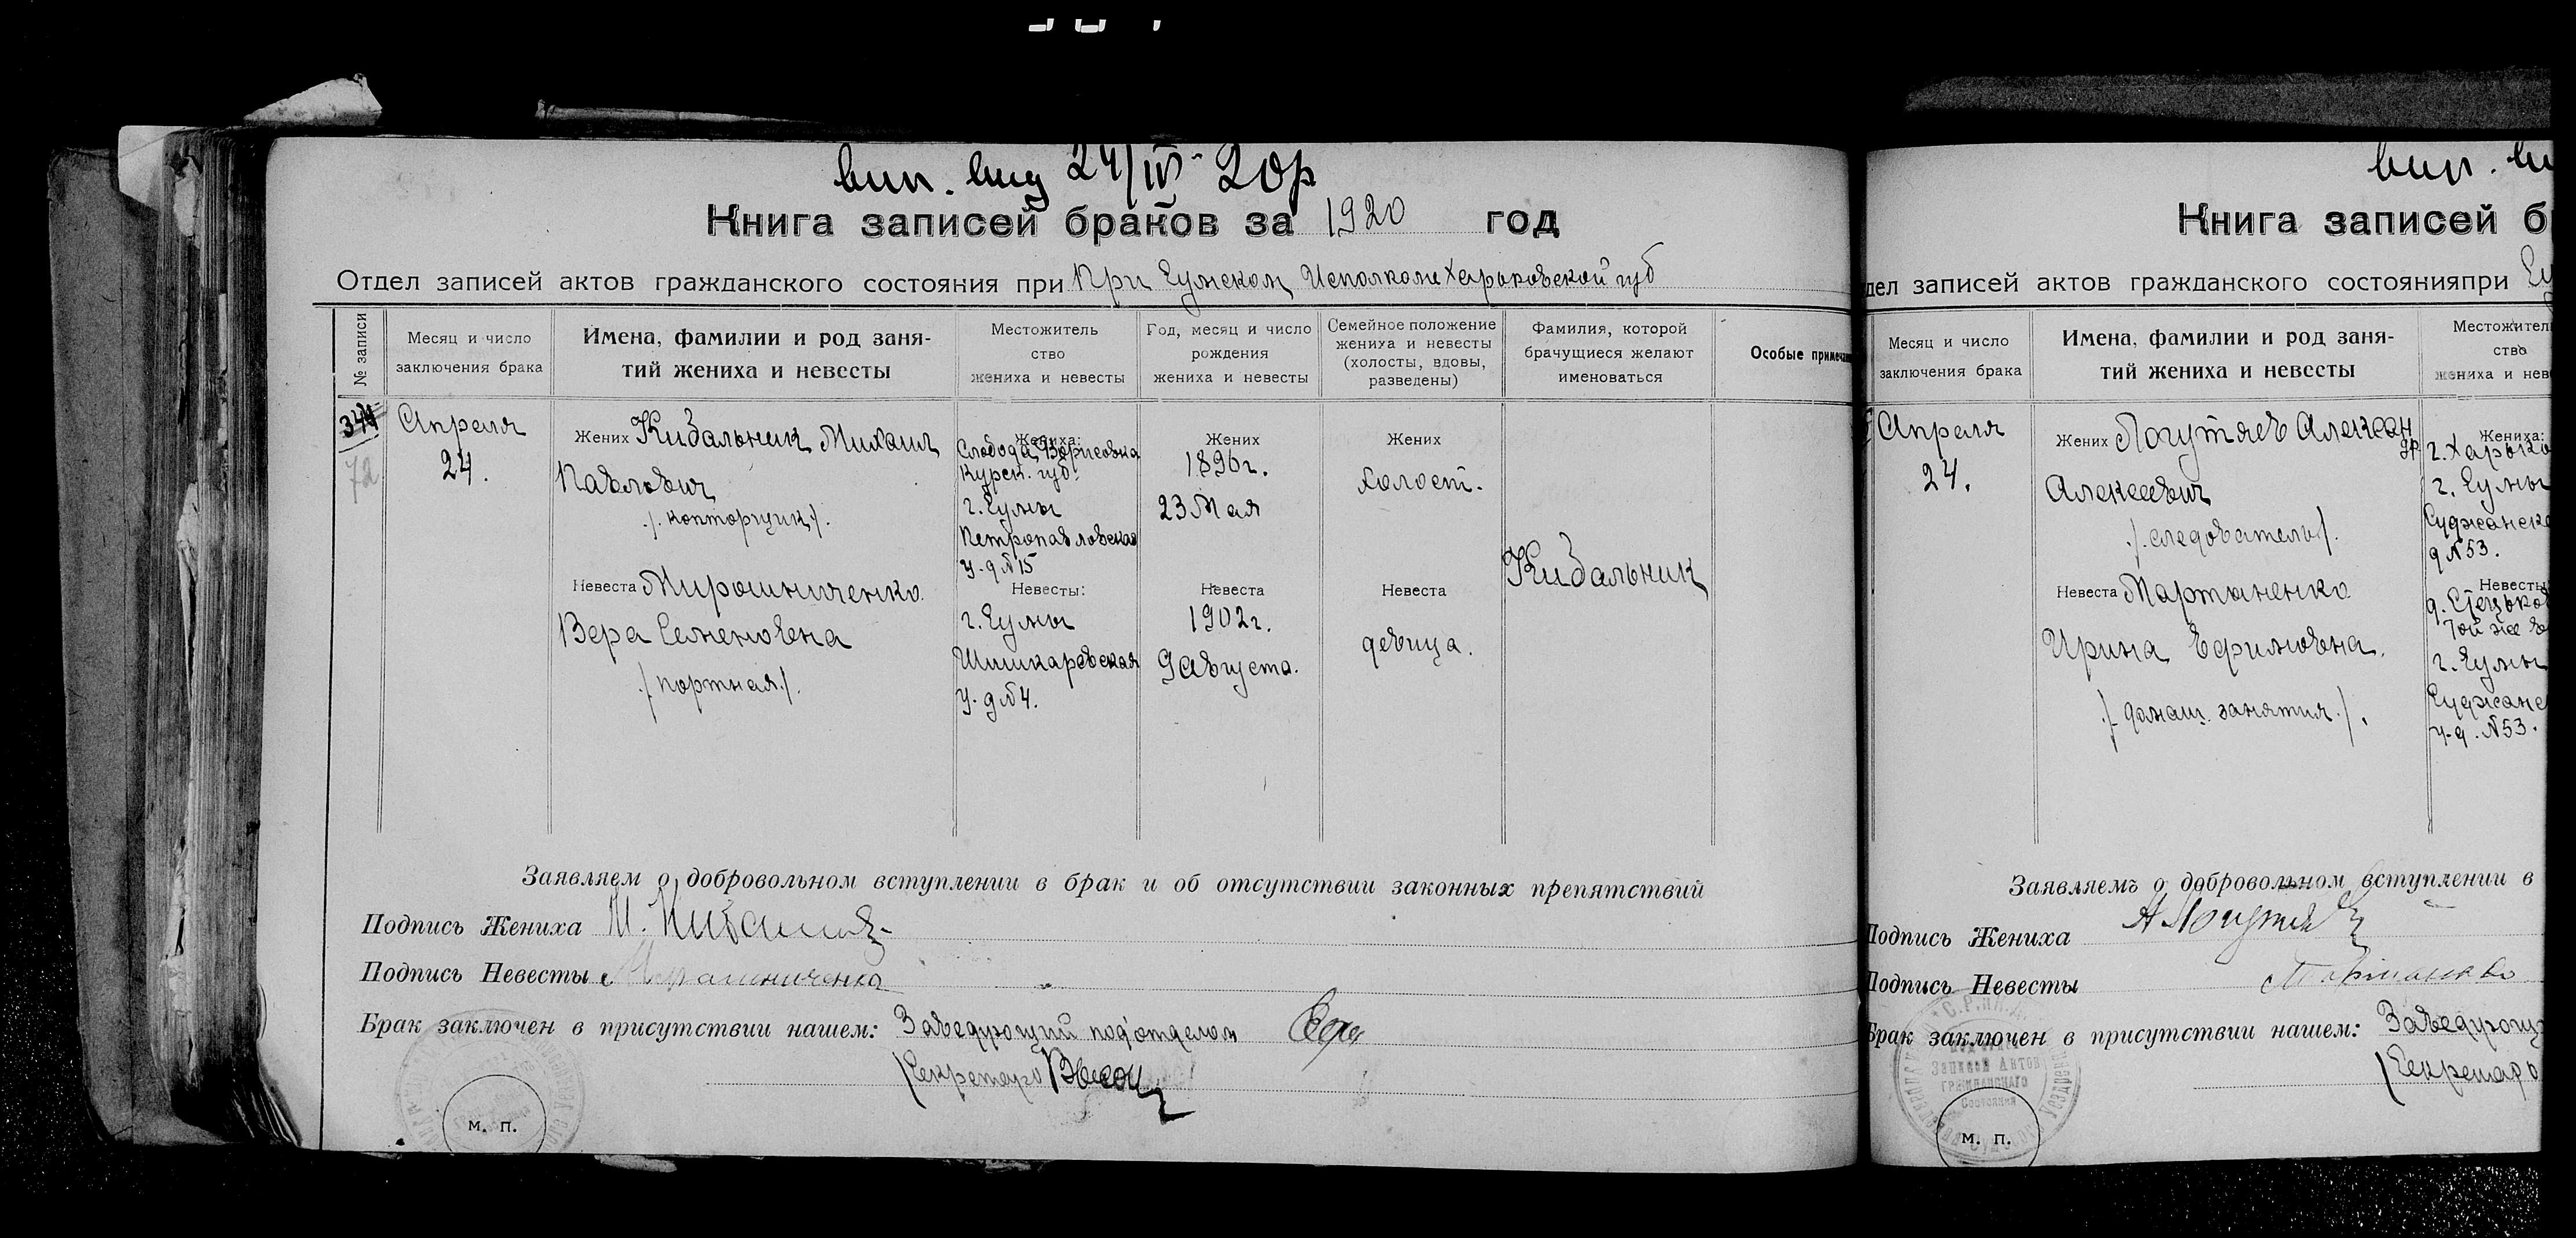 вип. вид 24/IV - 20р
Книга записей браков за 1920 год
Отдел записей актов гражданского состояния при При Сумском Исполкоме Харьковской губ
№ записи
Месяц и число заключения брака
Имена, фамилии и род заня-
тий жениха и невесты
Местожитель
ство
жениха и невесты
Год, месяц и число
рождения
жениха и невесты
Семейное положение
жениха и невесты
(холосты, вдовы,
разведены)
Фамилия, которой
брачущиеся желают
именоваться
Особые примечан
72
Апреля
24.
Жених Кибальник Михаил
Павлович
/. конторщик /.
Невеста Мирошниченко
Вера Семеновна
./ портная /.
Жениха:
Слобода Борисовка
Курск. губ.
г. Сумы
Петропавловская
у. д № 15
Невесты:
г. Сумы
Шишкаревская
у. д № 4.
Жених
1896 г.
23 Мая
Невеста
1902 г.
9 августа.
Жених
холост.
Невеста
девица.
Кибальник
Заявляем о добровольном вступлении в брак и об отсутствии законных препятствий
Подпись Жениха М. Кибальник
Подпись Невесты Мирошниченко
Брак заключен в присутствии нашем: Заведующий под'отделом
Секретарь
м. п.
вип. ви
Книга записей б
дел записей актов гражданского состоянияпри Су
Месяц и число
заключения брака
Имена, фамилии и род заня-
тий жениха и невесты
Местожител
ство
жениха и нев
Апреля
24.
Жених Логутяев Алексан
др
Алексеевич
./. следователь /.
Невеста Мартыненко
Ирина Ефимовна.
./ домаш. занятия. /.
Жениха:
г. Харько
г. Сумы
Суджанска
д № 53.
Невесты
д. Стецьков
той же во
г. Сумы
Суджанс
у. д. № 53.
Заявляемъ о добровольном вступлении в
Подпись Жениха А Логутяев
Подпись Невесты Мартыненко
Брак заключен в присутствии нашем: Заведующ
Секретарь
Записей Актов
Гражданского
Состояния
м. п.